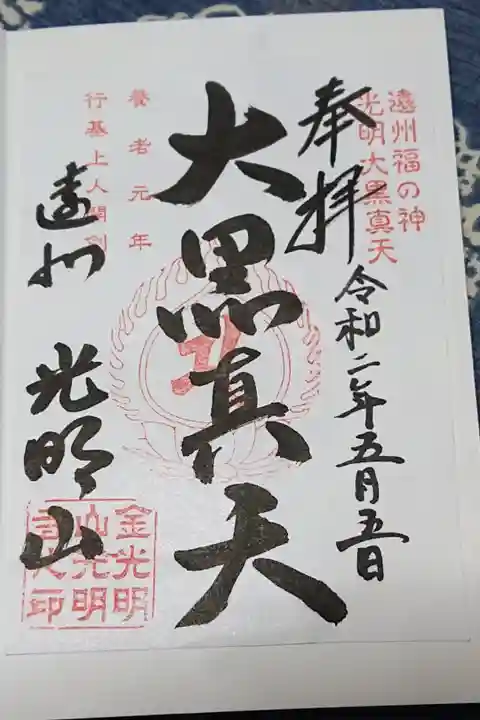 遠州福の神
光明大黒真天
奉拝
令和二年五月五日
大黒真天
養老元年
行基上人開創
遠州
光明山
金光明
山光明